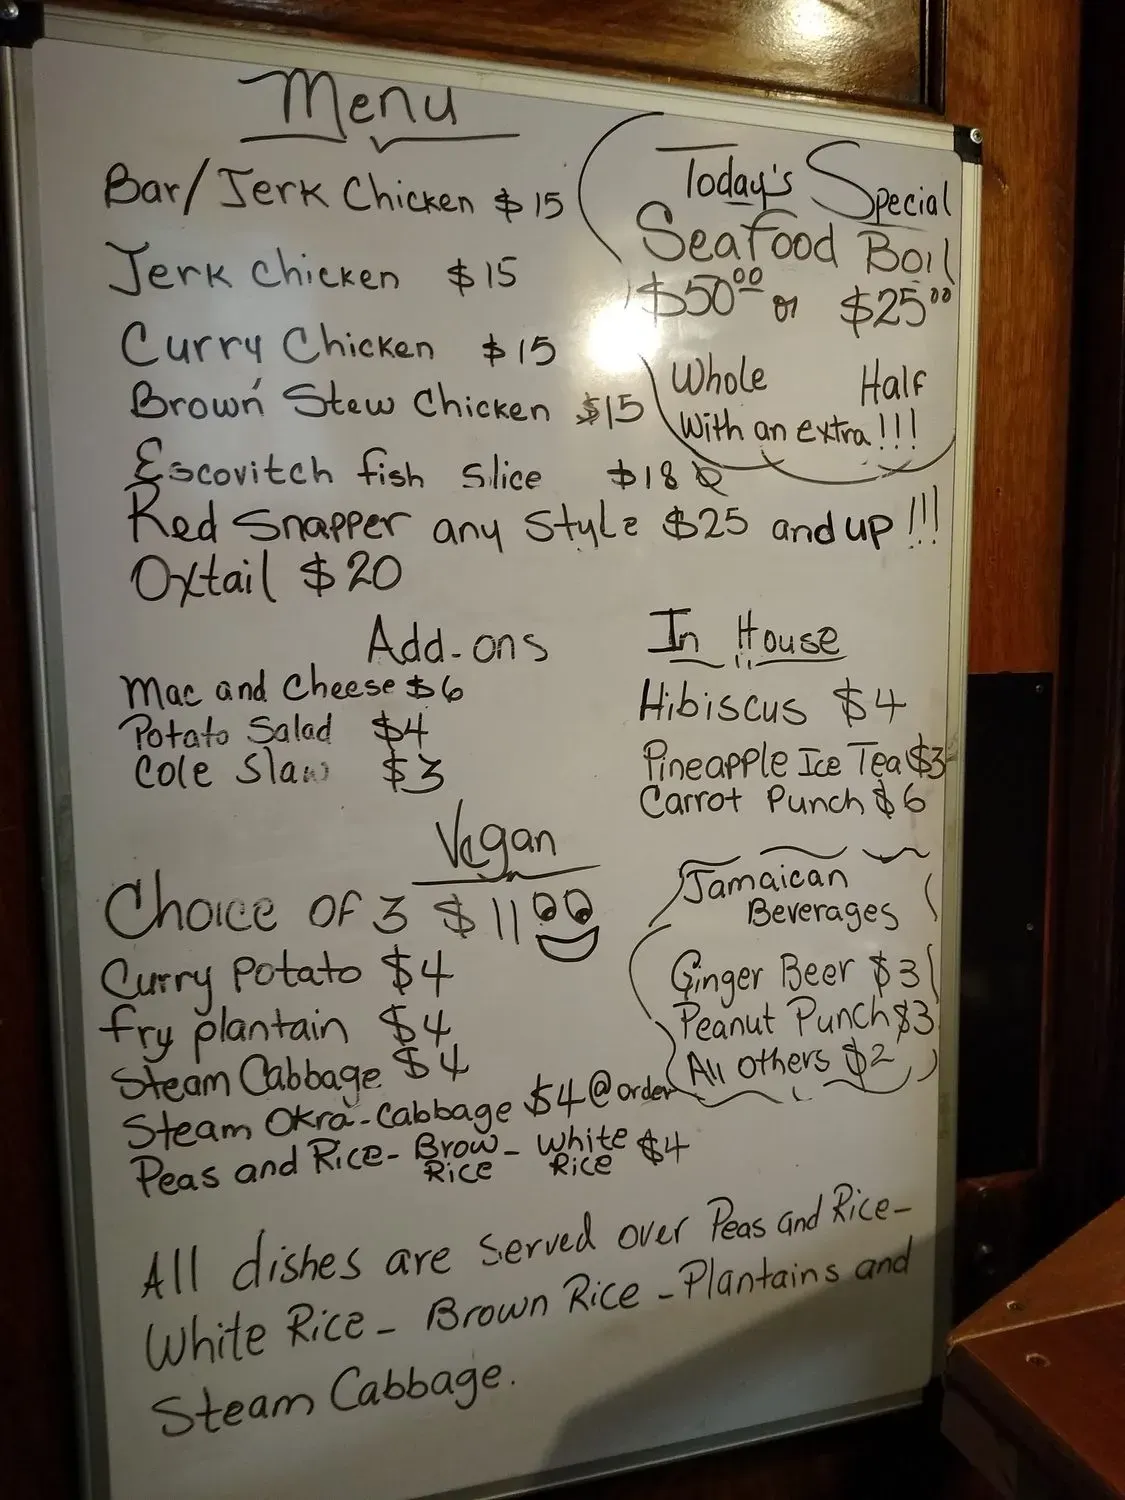 Menu
Bar/Jerk Chicken $15
Jerk chicken $15
Curry Chicken $15
Brown Stew Chicken $15
Escovitch fish slice $18
Red Snapper any Style $25 and up!!!
Oxtail $20
Today's Special
Seafood Boil
$50.00 or $25.00
Whole Half
With an extra!!!
Add-ons
Mac and Cheese $6
Potato Salad $4
Cole Slaw $3
In House
Hibiscus $4
Pineapple Ice Tea $3
Carrot Punch $6
Vegan
Choice OF 3 $11
Curry Potato $4
fry plantain $4
Steam Cabbage $4
Steam Okra-Cabbage $4 @ order
Peas and Rice- Brow- White $4
Rice Rice
Jamaican
Beverages
Ginger Beer $3
Peanut Punch $3
All others $2
All dishes are served over Peas and Rice-
White Rice- Brown Rice-Plantains and
Steam Cabbage.